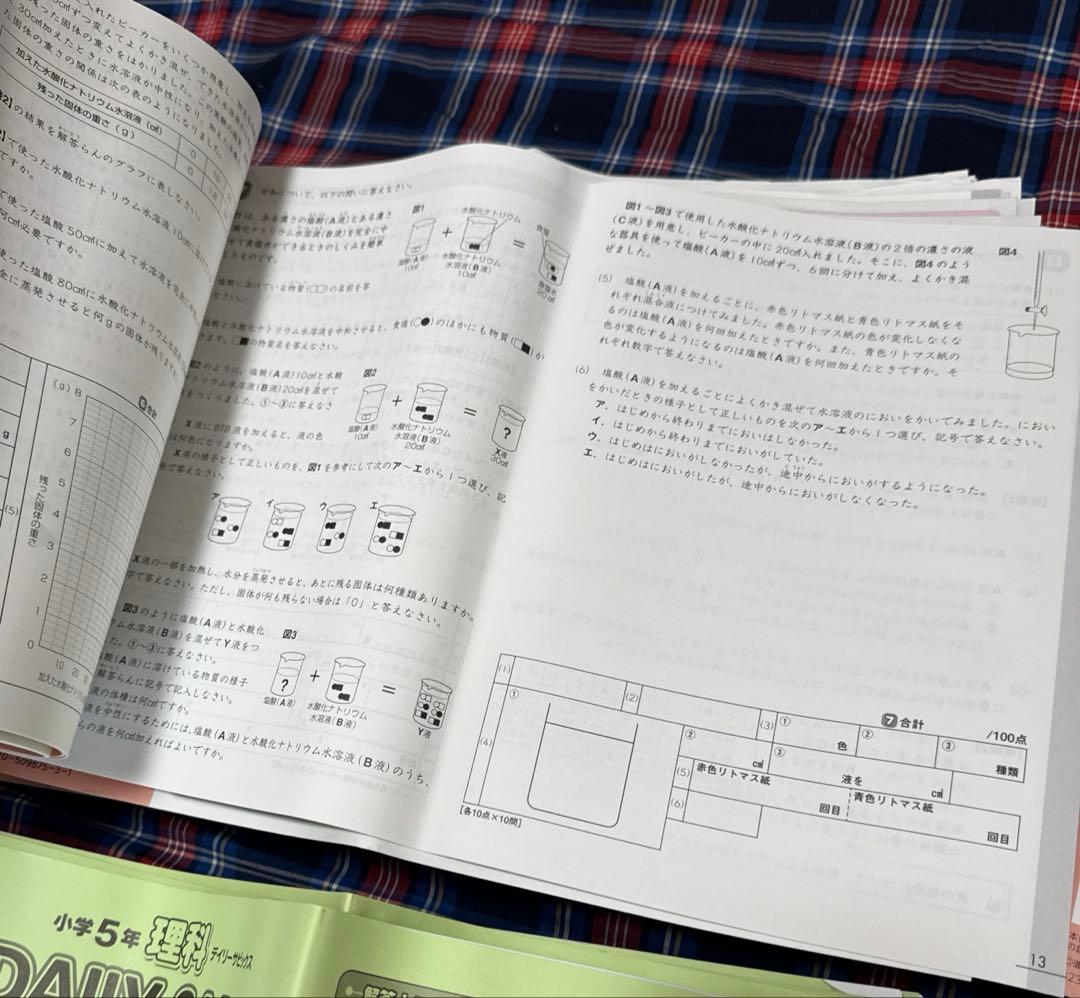 入れたビーカーをいくつか用意し、
ずつ変えてよくかき混ぜ、できた水溶液
残った固体の重さをはかりました。この実験の
30cm³加えたときに水溶液が中性になり、加えた水酸化
た固体の重さの関係は次の表のようになりました。
加えた水酸化ナトリウム水溶液(cm³)
0
10
残った固体の重さ(g)
0
2]の結果を解答らんのグラフに表しなさい。
で使った水酸化ナトリウム水溶液10cm³に
ですか。
使った塩酸50cm³に加えて水溶液を完全に
何cm³必要ですか。
使った塩酸80cm³に水酸化ナトリウム
全に蒸発させると何gの固体が残り
g
(5)
(g)
8
7
6
5
4
3
2
1
0
残った固体の重さ
10 20
加えた水酸化ナトリ
6 合計
0-509875-3-1
中和について、以下の問いに答えなさい。
は、ある濃さの塩酸(A液)とある濃さ
酸化ナトリウム水溶液(B液)を完全に中
せて食塩水ができるときのしくみを簡単
したものです。
図1
塩酸(A液)
10cm³
+
水酸化ナトリウム
水酸化ナトリウム
水溶液(B液)
10cm³
=
食塩
食塩水
20cm³
塩酸に溶けている物質(○□)の名前を答
なさい。
塩酸と水酸化ナトリウム水溶液を中和させると、食塩(○●)のほかにも物質(□■)が
きます。□■の物質名を答えなさい。
図2のように、塩酸(A液)10cm³と水酸
トリウム水溶液(B液)20cm³を混ぜて
をつくりました。①~③に答えなさ
図2
塩酸(A液)
10cm³
+
水酸化ナトリウム
水溶液(B液)
20cm³
=
?
X液
30cm³
X液にBTB液を加えると、液の色
は何色になりますか。
X液の様子として正しいものを、図1を参考にして次のア~エから1つ選び、記
号で答えなさい。
ア
イ
ウ
エ
X液の一部を加熱し、水分を蒸発させると、あとに残る固体は何種類ありますか。
字で答えなさい。ただし、固体が何も残らない場合は「0」と答えなさい。
図3のように塩酸(A液)と水酸化
ウム水溶液(B液)を混ぜてY液をつ
た。①~③に答えなさい。
図3
?
塩酸(A液)
+
水酸化ナトリウム
水溶液(B液)
=
Y液
酸(A液)に溶けている物質の様子
解答らんに記号で記入しなさい。
液の体積は何cm³ですか。
液を中性にするためには、塩酸(A液)と水酸化ナトリウム水溶液(B液)のうち、
らの液を何cm³加えればよいですか。
図1~図3で使用した水酸化ナトリウム水溶液(B液)の2倍の濃さの液
(C液)を用意し、ビーカーの中に20cm³入れました。そこに、図4のよう
な器具を使って塩酸(A液)を10cm³ずつ、6回に分けて加え、よくかき混
ぜました。
図4
(5) 塩酸(A液)を加えるごとに、赤色リトマス紙と青色リトマス紙をそ
れぞれ混合液につけてみました。赤色リトマス紙の色が変化しなくな
るのは塩酸(A液)を何回加えたときですか。また、青色リトマス紙の
色が変化するようになるのは塩酸(A液)を何回加えたときですか。そ
れぞれ数字で答えなさい。
(6) 塩酸(A液)を加えるごとによくかき混ぜて水溶液のにおいをかいでみました。におい
をかいだときの様子として正しいものを次のア~エから1つ選び、記号で答えなさい。
ア.はじめから終わりまでにおいはしなかった。
イ.はじめから終わりまでにおいがしていた。
ウ.はじめはにおいがしなかったが、途中からにおいがするようになった。
エ.はじめはにおいがしたが、途中からにおいがしなくなった。
7 合計
/100点
(1)
(2)
(3)
①
色
②
③
種類
(4)
①
②
cm³
③
液を
cm³
(5)
赤色リトマス紙
回目
青色リトマス紙
回目
(6)
[各10点×10問]
13
小学5年 理科 デイリーサピックス
DAILY